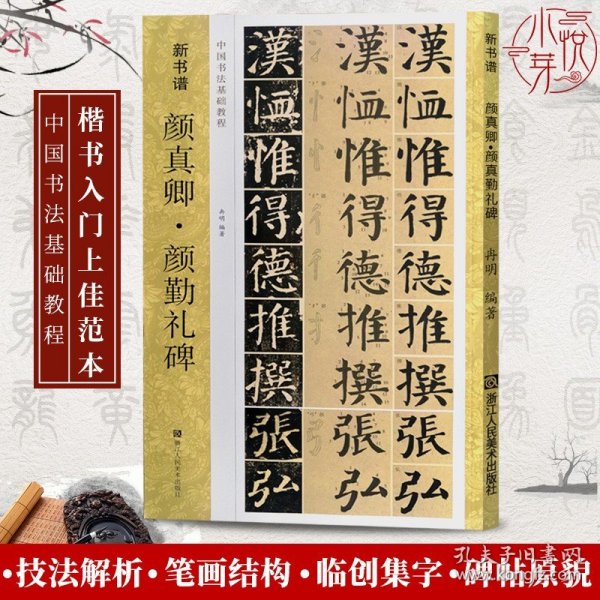 楷书入门上佳范本
中国书法基础教程
新书谱
颜真卿·颜勤礼碑
冉明 编著
中国书法基础教程
浙江人民美术出版社
漢 漢 漢
恤 恤 恤
惟 惟 惟
得 得 得
德 德 德
推 推 推
撰 撰 撰
張 張 張
弘 弘 弘
新书谱
颜真卿·颜真勤礼碑
冉明 编著
浙江人民美术出版社
·技法解析·笔画结构·临创集字·碑帖原貌
孔夫子旧书网